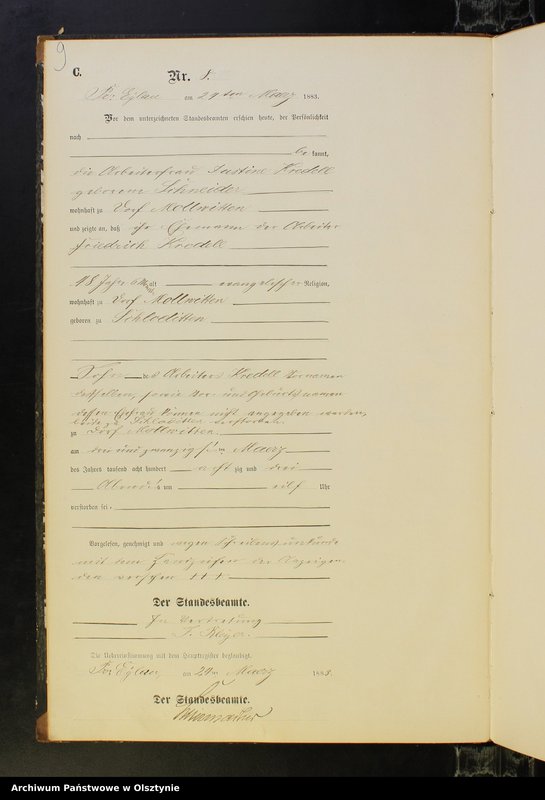 9
C.
Nr. 8.
Pr. Eylau am 24ten Maerz 1883.
Vor dem unterzeichneten Standesbeamten erschien heute, der Persönlichkeit
nach
be kannt,
die Arbeiterfrau Justine Krodell
geborene Schneider
wohnhaft zu Dorf Mollwitten
und zeigte an, daß ihr Ehemann der Arbeiter
Friedrich Krodell
48 Jahr alt evangelischer Religion,
wohnhaft zu Dorf Mollwitten
geboren zu Schloditten
Sohn des Arbeiters Krodell Vornamen
desselben, sowie Vor- und Geburtsnamen
dessen Ehefrau können nicht angegeben werden,
beide zu Schloditten verstorben.
zu Dorf Mollwitten
am drei und zwanzigsten Maerz
des Jahres tausend acht hundert achtzig und drei
Abends um elf Uhr
verstorben sei.
Vorgelesen, genehmigt und wegen Schreibensunkunde
mit dem Handzeichen der Anzeigen-
den versehen +++
Der Standesbeamte.
In Vertretung
Die Uebereinstimmung mit dem Hauptregister beglaubigt.
Pr. Eylau, am 24ten Maerz 1883.
Der Standesbeamte.
Archiwum Państwowe w Olsztynie